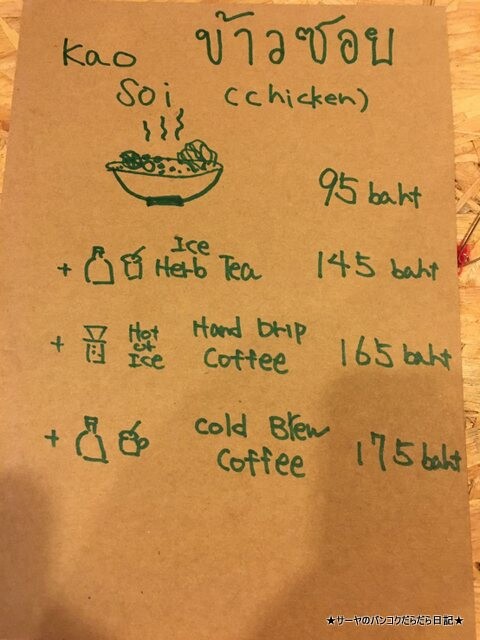 Kao ข้าวซอย
Soi (chicken)
95 baht
+ Ice Herb Tea 145 baht
+ Hot or Ice Hand Drip Coffee 165 baht
+ Cold Brew Coffee 175 baht
★サーヤのバンコクだらだら日記★